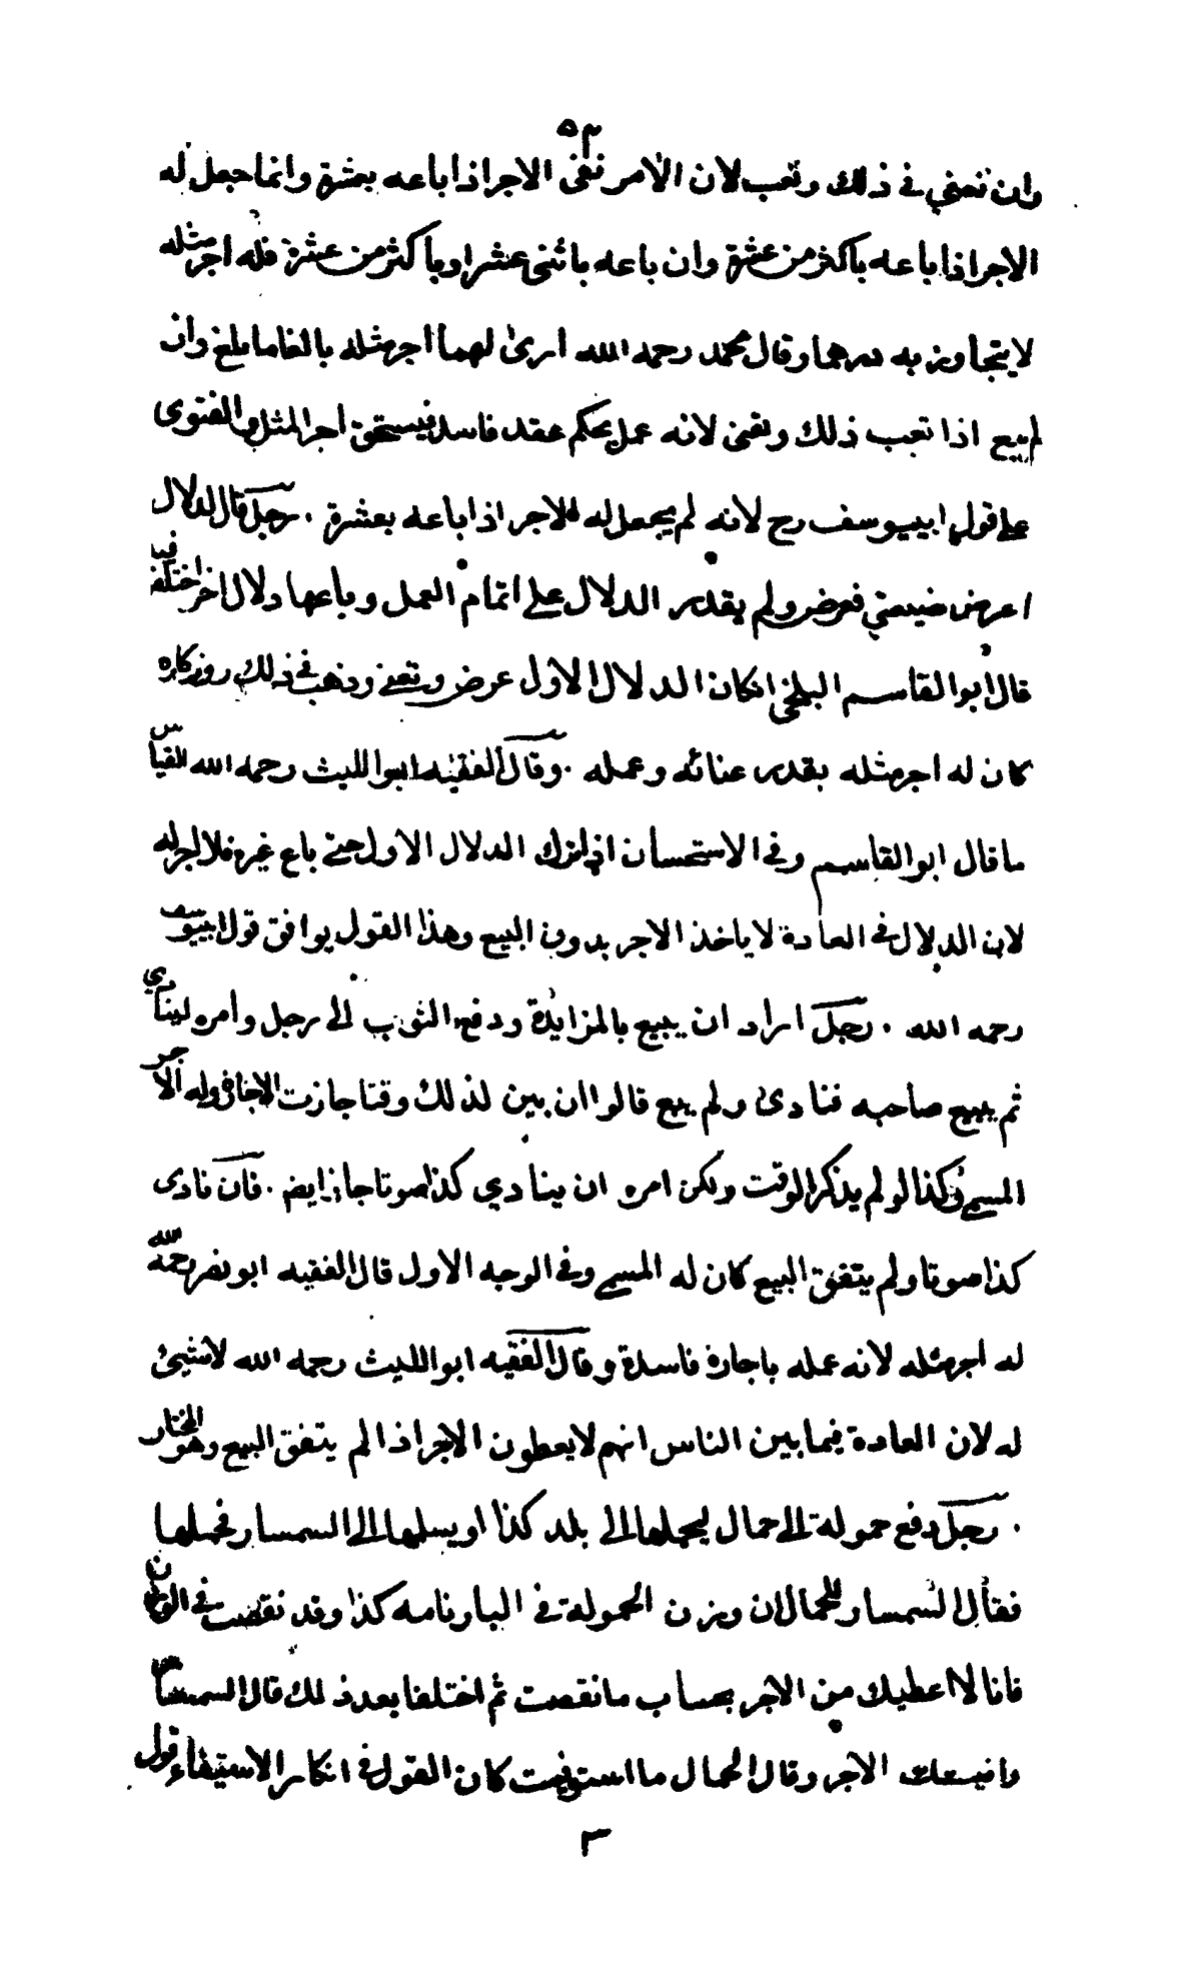 ٥٣
وان تعنى في ذلك وتعب لان الامر نفى الاجر اذا باعه بعشرة وانما جعل له
الاجر اذا باعه باكثر من عشرة وان باعه باثنى عشر او باكثر من عشرة فله اجر مثله
لا يتجاوز به درهما وقال محمد رحمه الله ارى لهما اجر مثله بالغا ما بلغ وان
لم يبع اذا تعب ذلك وتعنى لانه عمل بحكم عقد فاسد فيستحق اجر المثل والفتوى
على قول ابييوسف رح لانه لم يجعل له الاجر اذا باعه بعشرة . رجل قال لدلال
اعرض ضيعتي فعرض ولم يقدر الدلال على اتمام العمل وباعها دلال اخر اختلف فيه
قال ابو القاسم البلخي انكان الدلال الاول عرض وتعنى وذهب في ذلك روزكاره
كان له اجر مثله بقدر عنائه وعمله . وقال الفقيه ابو الليث رحمه الله القياس
ما قال ابو القاسم وفي الاستحسان اذا ترك الدلال الاول حتى باع غيره فلا اجر له
لان الدلال في العادة لا ياخذ الاجر بدون البيع وهذا القول يوافق قول ابييوسف
رحمه الله . رجل اراد ان يبيع بالمزايدة ودفع الثوب الى رجل وامره لينادي
ثم يبيع صاحبه فنادى ولم يبع قالوا ان بين لذلك وقتا جازت الاجارة وله الاجر
المسمى وكذا لو لم يذكر الوقت ولكن امره ان ينادي كذا صوتا جاز ايض . فان نادى
كذا صوتا ولم يتفق البيع كان له المسمى وفي الوجه الاول قال الفقيه ابو نصر رحمه الله
له اجر مثله لانه عمله باجارة فاسدة وقال الفقيه ابو الليث رحمه الله لا شيئ
له لان العادة فيما بين الناس انهم لا يعطون الاجر اذا لم يتفق البيع وهو المختار
. رجل دفع حمولة الى حمال ليحملها الى بلد كذا او يسلمها الى السمسار فحملها
فقال السمسار للحمال ان وزن الحمولة في البارنامه كذا وقد نقصت في الوزن
فانا لا اعطيك من الاجر بحساب ما نقصت ثم اختلفا بعد ذلك قال السمسار
وافيتك الاجر وقال الحمال ما استوفيت كان القول في انكار الاستيفاء قول
٣